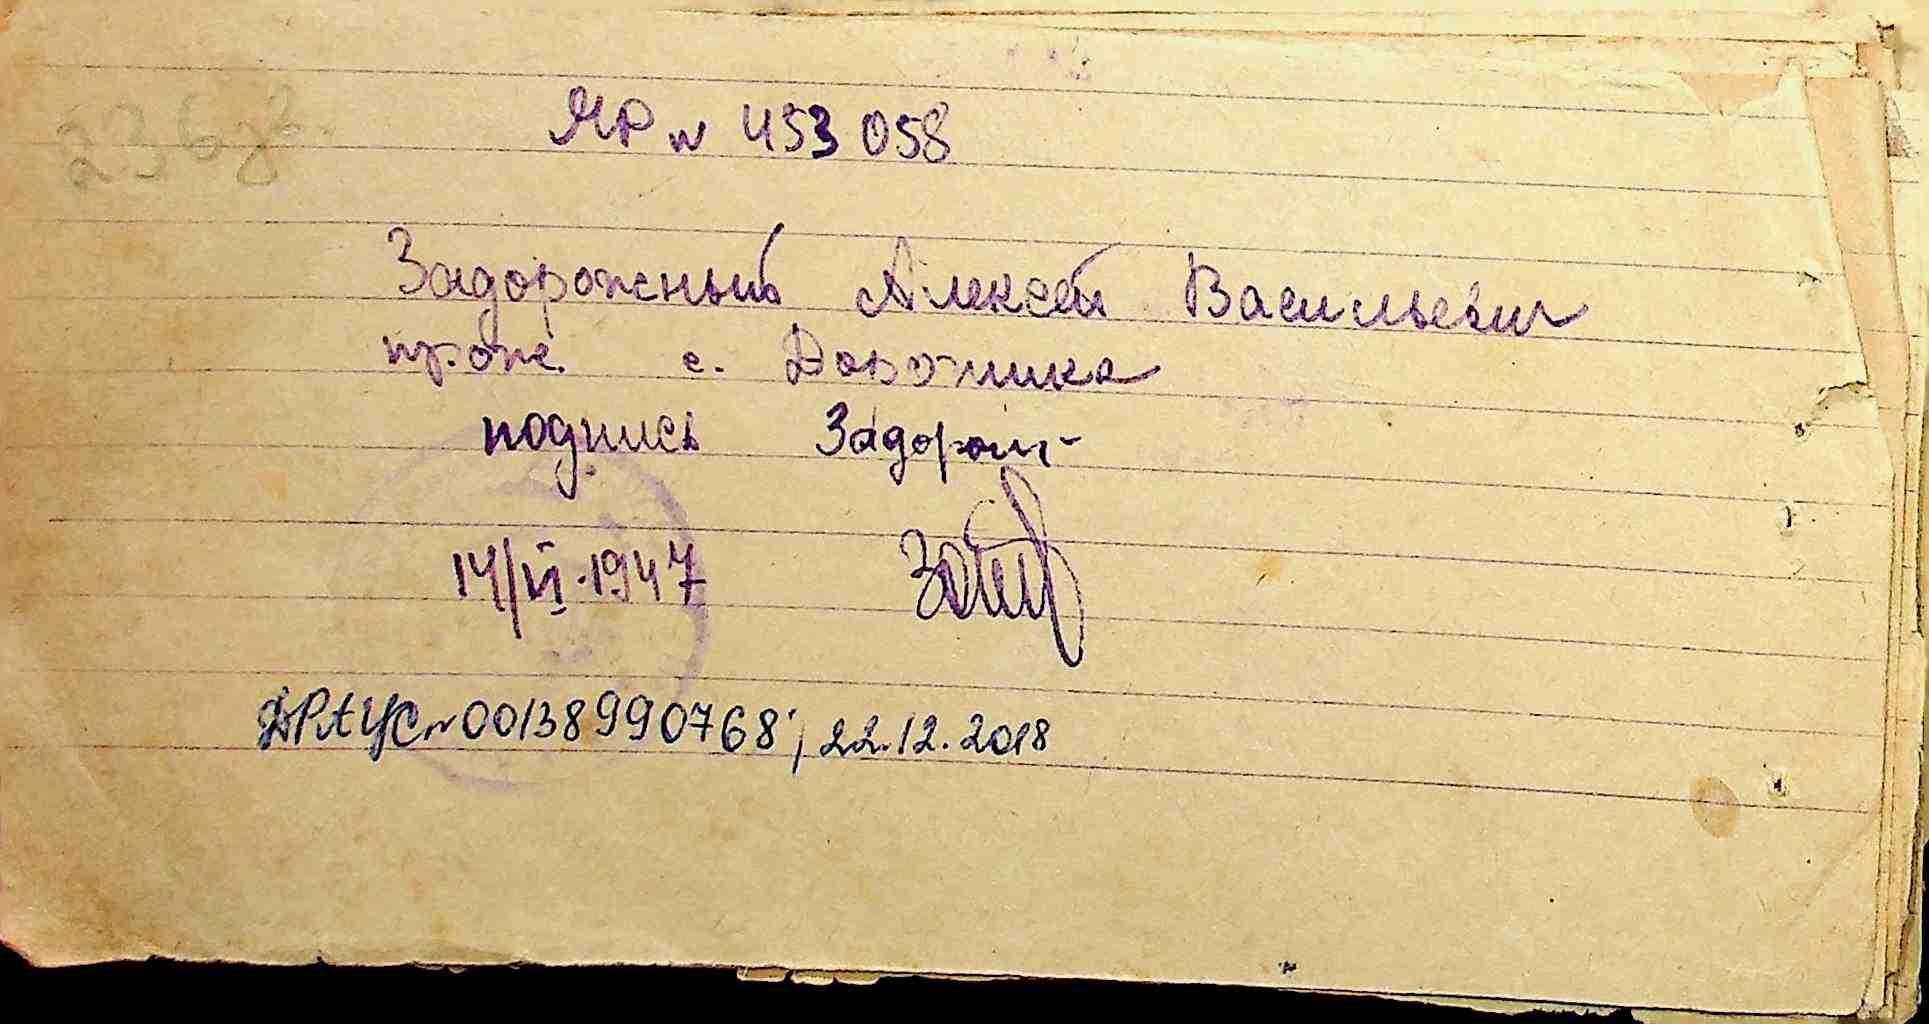 236 зв.
ЯР № 453 058
Задорожный Алексей Васильевич
прож. с. Доброжика
подпись Задорож-
14/VI.1947
ДРАЦС № 00138990768; 22.12.2018